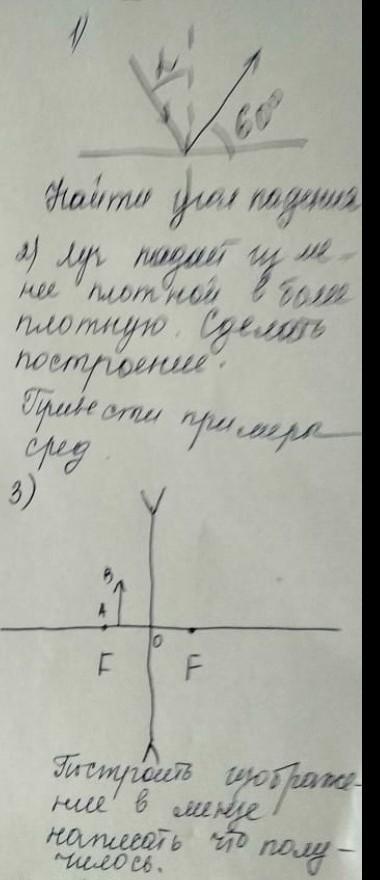 1)
L
60°
Найти угол падения
2) Луч падает из ме-
нее плотной в более
плотную. Сделать
построение.
Привести примеры
сред.
3)
B
A
O
F F
Построить изображе-
ние в линзе
написать что полу-
чилось.